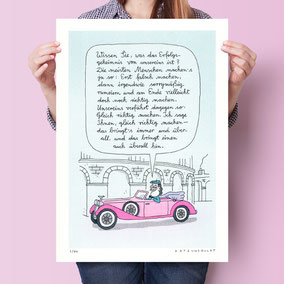 Wissen Sie, was das Erfolgs-
geheimnis von unsereins ist?
Die meisten Menschen machen's
ja so: Erst falsch machen,
dann irgendwie
und am Ende vielleicht
doch noch richtig machen.
Unsereins verfährt dagegen so:
Gleich richtig machen. Ich sage
Ihnen, gleich richtig machen –
das bringt's immer und über-
all. und das bringt einen
auch überall hin.